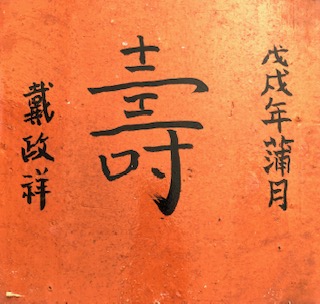 戊戌年蒲月
壽
戴政祥